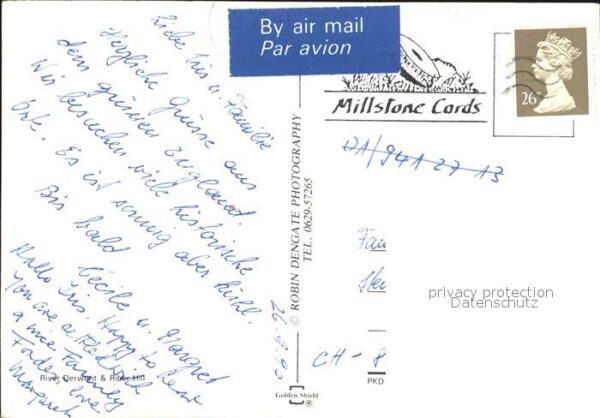 Liebe Iris u. Familie
Herzlich Grüsse aus
dem grünen England.
Wir besuchen viele historische
Orte. Es ist sonnig aber kühl.
Bis bald
Cécile u. Margret
Hallo Iris. Happy to hear
you are a
a nice Family
Fondest love
Margaret
River Derwent & Riber Hill
26.9.90
© ROBIN DENGATE PHOTOGRAPHY
TEL. 0629-57265
By air mail
Par avion
Millstone Cards
26
01/941 27 13
Fam
CH - 8
PKD
Golden Shield
®
privacy protection
Datenschutz